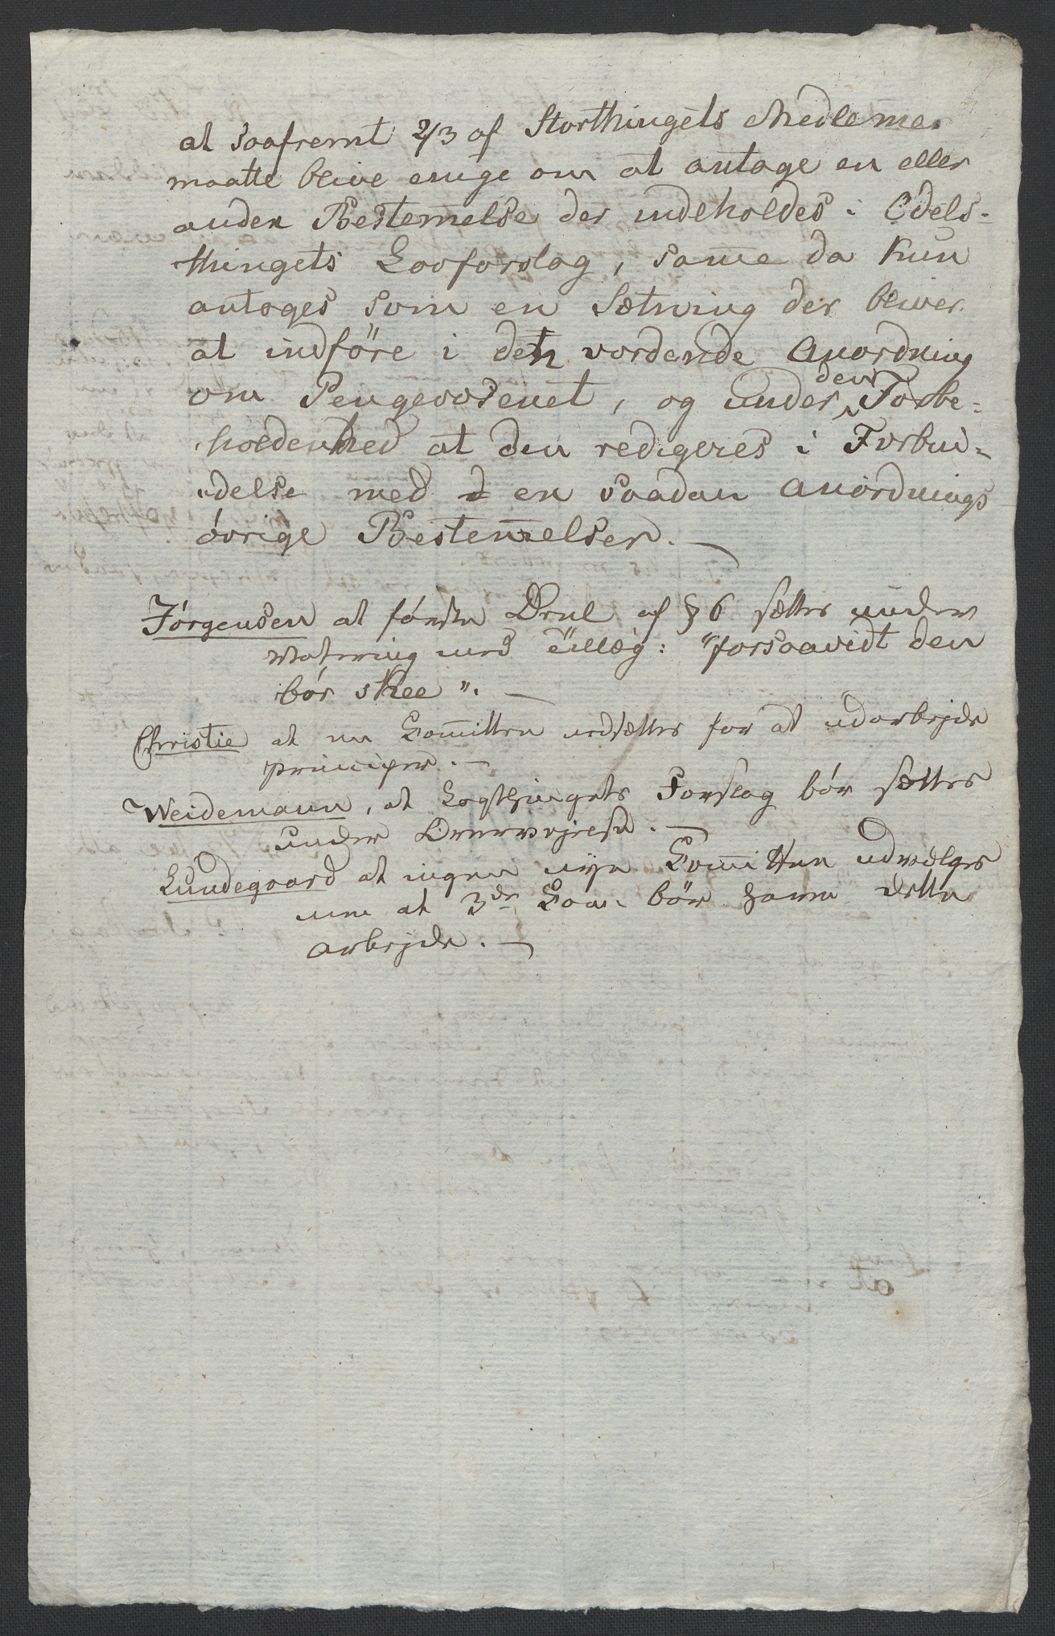 at saafremt 2/3 af Storthingets Medlemer
maatte blive enige om at antage en eller
anden Bestemelse der indeholdes i Odels-
thingets Lovforslag, same da kun
antages som en Sætning der bliver
at indföre i den vordende Anordning
om Pengevæsenet, og under den Forbe-
holdenhed at den redigeres i Forbin-
delse med en saadan Anordnings
övrige Bestemelser.
Jørgensen at første Deel af § 6 sættes under
Votering med Tillæg: "forsaavidt den
bör skee".
Christie at en Comittee nedsættes for at udarbejde
principer.
Weidemann, at Lagthingets Forslag bör sættes
under Overvejelse.
Lundegaard at ingen nye Comittee udvælges
men at 3de Com: bör have dette
arbejde.